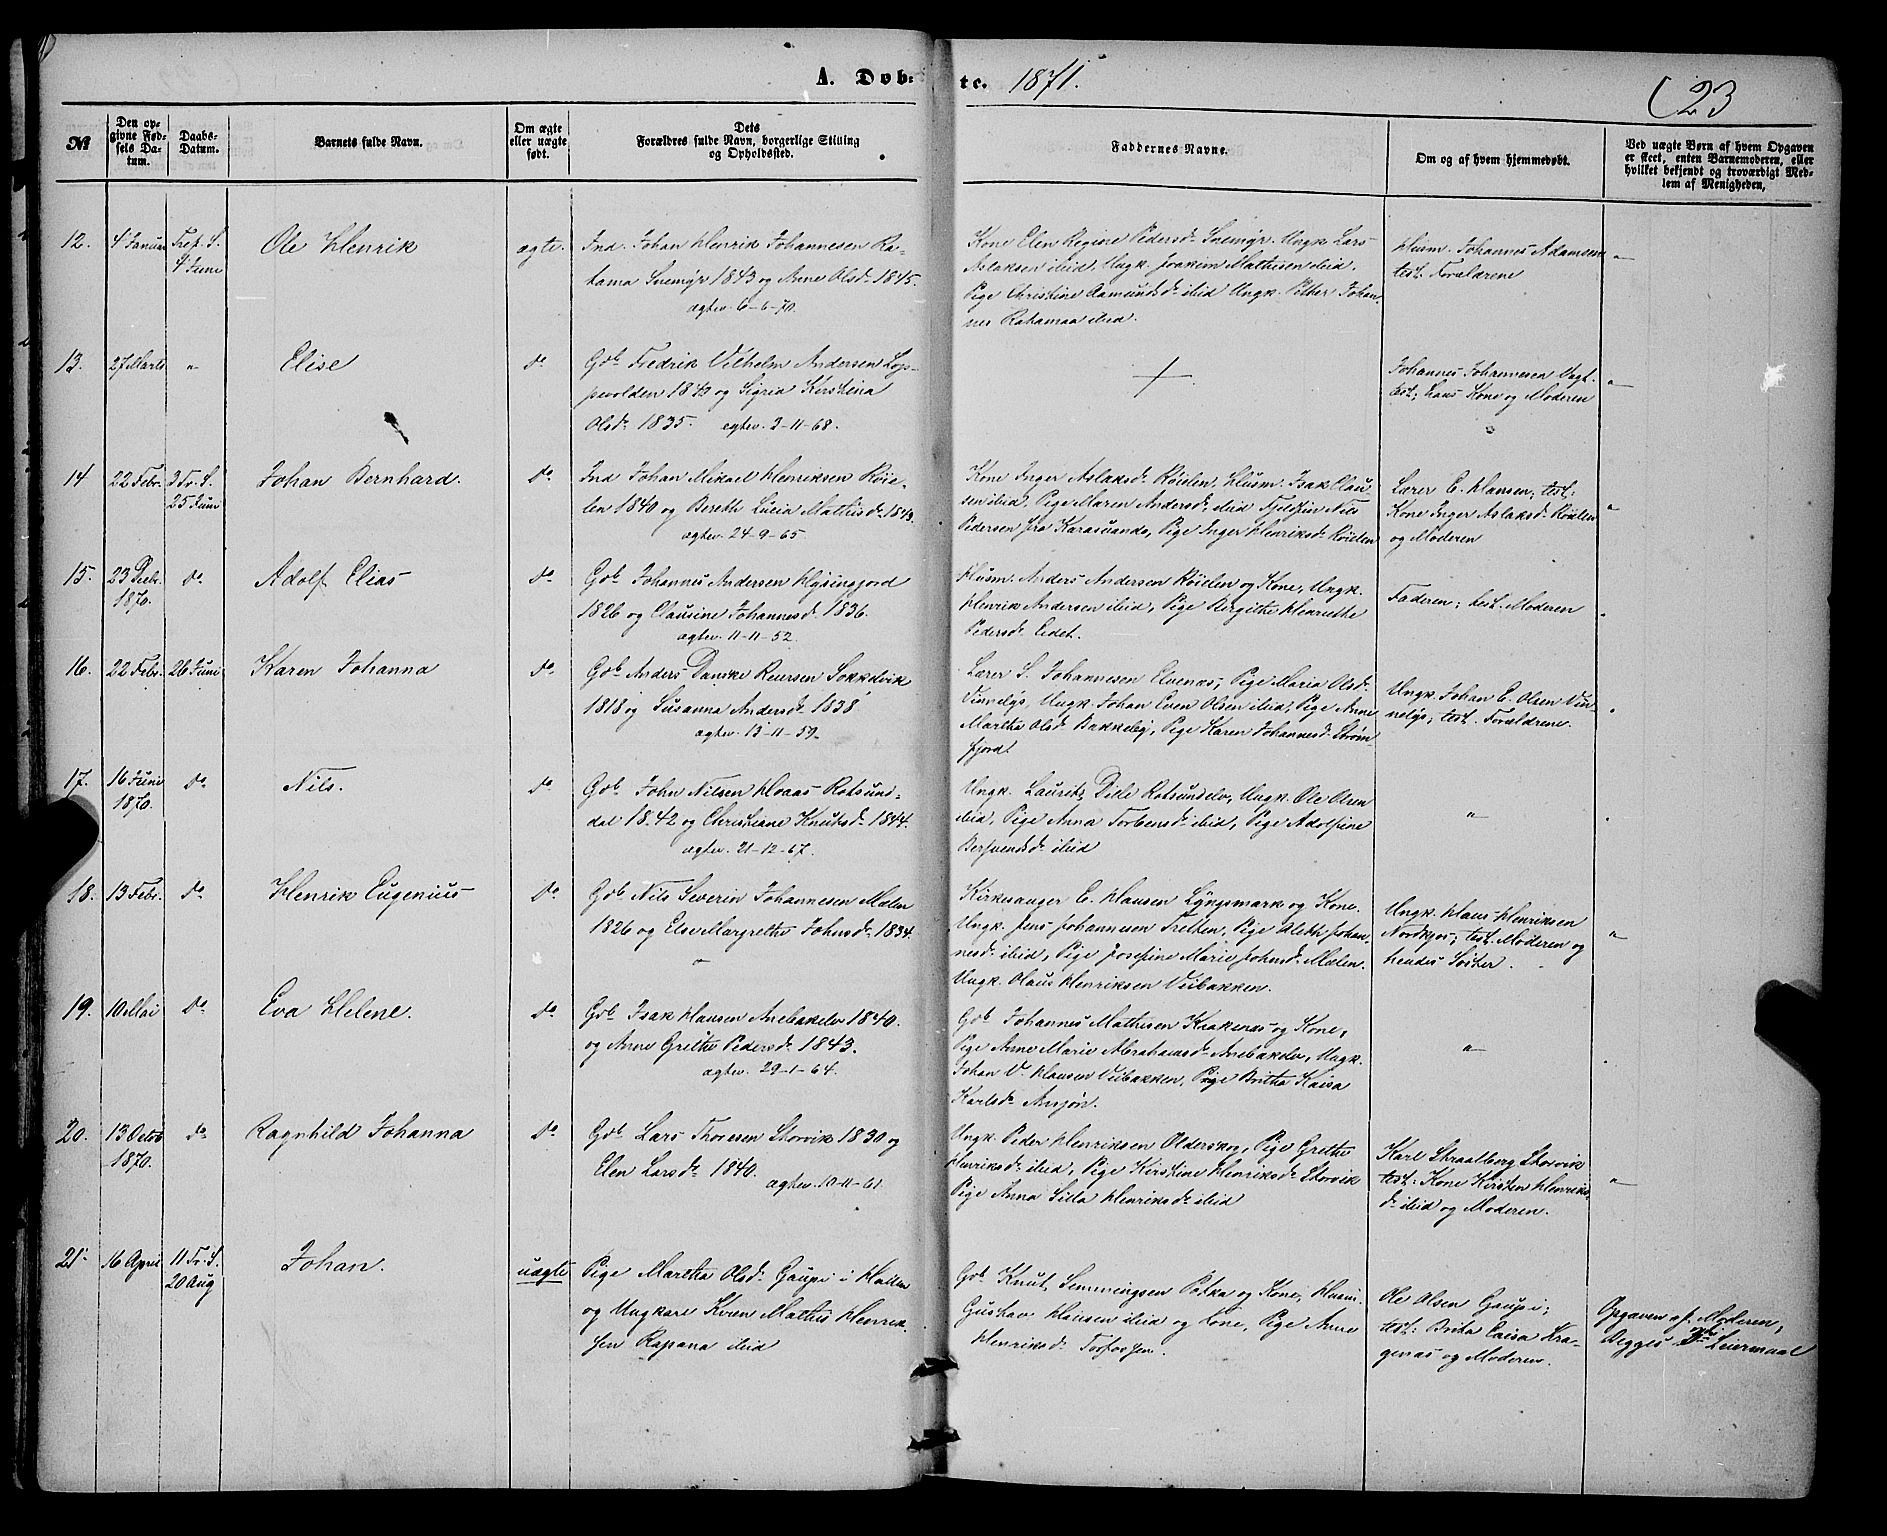 A. Døb- te. 1871.
23
№
Den op-
givne Fød-
sels Da-
tum.
Daabs-
Datum.
Barnets fulde Navn.
Om ægte
eller uægte
født.
Dets
Forældres fulde Navn, borgerlige Stilling
og Opholdssted.
Faddernes Navne.
Om og af hvem hjemmedøbt.
Ved uægte Børn af hvem Opgaven
er skeet, enten Barnemoderen, eller
hvilket bekjendt og troværdigt Med-
lem af Menigheden,
12.
4 Januar
Tref. S.
4 Juni
Ole Henrik
ægte.
Ind. Johan Henrik Johannesen Ra-
tama Snemyr 1843 og Anne Olsdr 1845.
ægtev. 6-6-70.
Kone Elen Regine Pedersdr Snemyr. Ungk. Lars
Aslaksen ibid, Ungk. Joakim Mathisen ibid.
Pige Christine Aamundsdr ibid Ungk. Petter Johan-
nes Ratamaa ibid.
Husm. Johannes Adamsen
test. Forældrene
"
13.
27 Marts
"
Elise
do
Gdb Fredrik Vilhelm Andersen Lyp-
pevolden 1843 og Sigrid Kirstina
Olsdr 1835. egtev. 2-11-68.
+
Johannes Johannesen Vagt.
test; hans Kone og Moderen
"
14
22 Febr.
3 Tr. S.
25 Juni
Johan Bernhard.
do
Ind Johan Mikael Henriksen Røie-
len 1840 og Bereth Lucia Mathisdr 1843.
ægtev. 24-9-65
Kone Inger Aslaksdr Røielen, Husm. Isak Olau-
sen ibid, Pige Maren Andersdr ibid Fjeldfin Nils
Pedersen fra Karasuando, Pige Inger Henriksdr Røielen
Lærer E. Hansen; test:
Kone Inger Aslaksdr Røielen
og Moderen
"
15.
23 Decbr.
1870.
do
Adolf Elias
do
Gdb Johannes Andersen Hysingjord
1826 og Clausine Johannesdr 1836.
ægtev. 11-11-52.
Husm. Anders Andersen Røielen og Kone, Ungk.
Henrik Andersen ibid, Pige Birgithe Henriethe
Pedersdr Eidet.
Faderen; test. Moderen
16.
22 Febr.
26 Juni
Karen Johanna
do
Gdb Anders Danske Reiersen Sokkelvik
1818 og Susanna Andersdr 1838
ægtev. 13-11-59.
Lærer S. Johannesen Elvenæs; Pige Maria Olsdr
Vinnelys, Ungk. Johan Even Olsen ibid, Pige Anne
Martha Olsdr Bakkeby, Pige Karen Johannesdr Strøm-
fjord.
Ungk. Johan E. Olsen Vin-
nelys; test. Forældrene.
17.
16 Juni
1870.
do
Nils.
do
Gdb. John Nilsen Haas Rotsund-
dal 1842 og Christiane Knutsdr 1844.
ægtev. 21-12-67.
Ungk. Laurits Dide Rotsundelv, Ungk. Ole Olsen
ibid, Pige Anna Torbensdr ibid, Pige Adolfine
Bersvendsdr ibid
"
18.
13 Febr.
do
Henrik Eugenius
do
Gdb Nils Severin Johannesen Mælen
1826 og Else Margrethe Johnsdr 1834.
Kirkesanger E. Hansen Lyngsmark og Kone.
Ungk. Jens Johannesen Tretten, Pige Aleth Johan-
nesdr ibid, Pige Josefine Marie Johnsdr Mælen.
Ungk. Olaus Henriksen Veibakken.
Ungk. Hans Henriksen
Nordkjos; test. Moderen og
hendes Søster.
"
19.
10 Mai
do
Eva Helene.
do
Gdb Isak Hansen Anebakelv 1840.
og Anne Grethe Pedersdr 1843.
ægtev. 29-1-64.
Gdb Johannes Mathisen Krakenes og Kone,
Pige Anne Marie Abrahamsdr Anebakelv, Ungk.
Johan V. Hansen Veibakken, Pige Britha Kaisa
Karlsdr Ansjøn.
"
20.
13 Octob
1870.
do
Ragnhild Johanna
do
Gdb Lars Thoresen Storvik 1830 og
Elen Larsdr 1840.
ægtev. 10-11-61
Ungk. Peder Henriksen Olderskog, Pige Grethe
Henriksdr ibid, Pige Kirstine Henriksdr Storvik
Pige Anna Silla Henriksdr ibid
Karl Straalberg Storvik
test: Kone Kirsten Henriks-
dr ibid og Moderen.
"
21.
16 April
11 Tr. S.
20 Aug
Johan.
uægte
Pige Martha Olsdr Gaupi i Halten
og Ungkarl Kven Mathis Henrik-
sen Rapana ibid
Gdb Knut Semmingsen Potka og Kone, Husm.
Gustav Hansen ibid og Kone, Pige Anne
Henriksdr
Ole Olsen Gaupi;
test: Brita Caisa Kra-
genæs og Moderen.
Opgaven af Moderen,
Begges Leiermaal